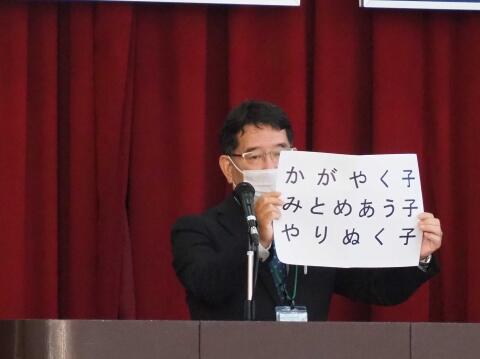 かがやく子
みとめあう子
やりぬく子